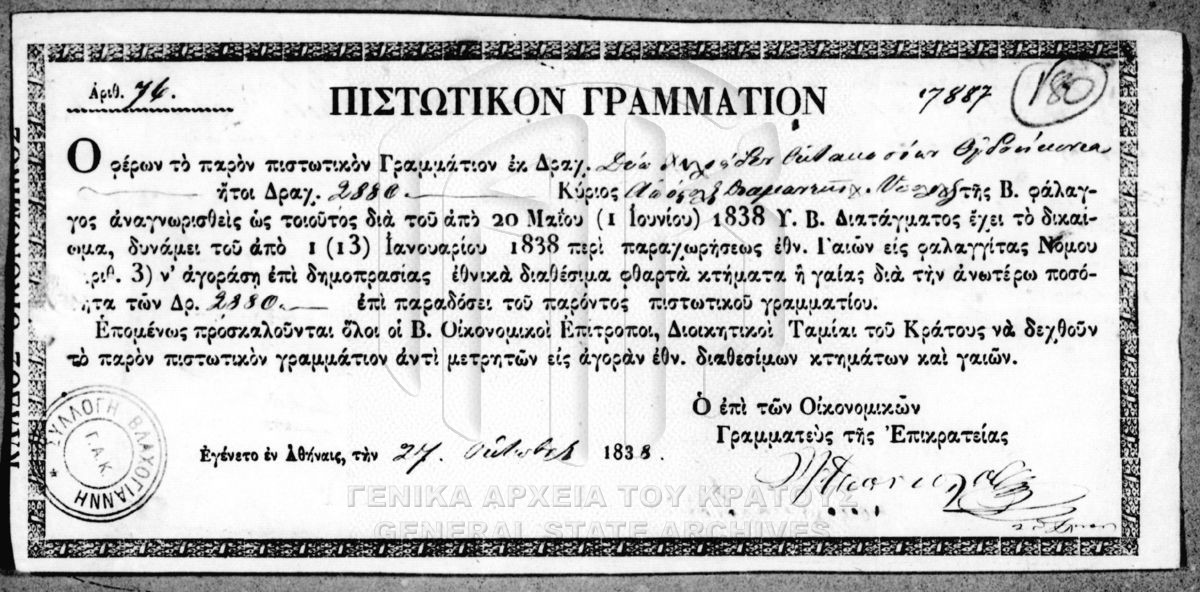 Ἀριθ. 76.
ΠΙΣΤΩΤΙΚΟΝ ΓΡΑΜΜΑΤΙΟΝ
7887
180
Ὁ φέρων τὸ παρὸν πιστωτικὸν Γραμμάτιον ἐκ Δραχ. Δύο χιλ. Ὀκτακοσίων Ὀγδοήκοντα
ἤτοι Δραχ. 2880 Κύριος τῆς Β. φάλαγ-
γος ἀναγνωρισθεὶς ὡς τοιοῦτος διὰ τοῦ ἀπὸ 20 Μαΐου (1 Ἰουνίου) 1838 Υ. Β. Διατάγματος ἔχει τὸ δικαί-
ωμα, δυνάμει τοῦ ἀπὸ 1 (13) Ἰανουαρίου 1838 περὶ παραχωρήσεως ἐθν. Γαιῶν εἰς φαλαγγίτας Νόμου
ριθ. 3) ν' ἀγοράσῃ ἐπὶ δημοπρασίας ἐθνικὰ διαθέσιμα φθαρτὰ κτήματα ἢ γαίας διὰ τὴν ἀνωτέρω ποσό-
τητα τῶν Δρ. 2880 ἐπὶ παραδόσει τοῦ παρόντος πιστωτικοῦ γραμματίου.
Ἑπομένως προσκαλοῦνται ὅλοι οἱ Β. Οἰκονομικοὶ Ἐπίτροποι, Διοικητικοὶ Ταμίαι τοῦ Κράτους νὰ δεχθοῦν
τὸ παρὸν πιστωτικὸν γραμμάτιον ἀντὶ μετρητῶν εἰς ἀγορὰν ἐθν. διαθεσίμων κτημάτων καὶ γαιῶν.
Ὁ ἐπὶ τῶν Οἰκονομικῶν
Γραμματεὺς τῆς Ἐπικρατείας
Ἐγένετο ἐν Ἀθήναις, τὴν 27 Ὀκτωβρ 1838.
ΣΥΛΛΟΓΗ ΒΛΑΧΟΓΙΑΝΝΗ
Γ.Α.Κ.
ΓΕΝΙΚΑ ΑΡΧΕΙΑ ΤΟΥ ΚΡΑΤΟΥΣ
GENERAL STATE ARCHIVES